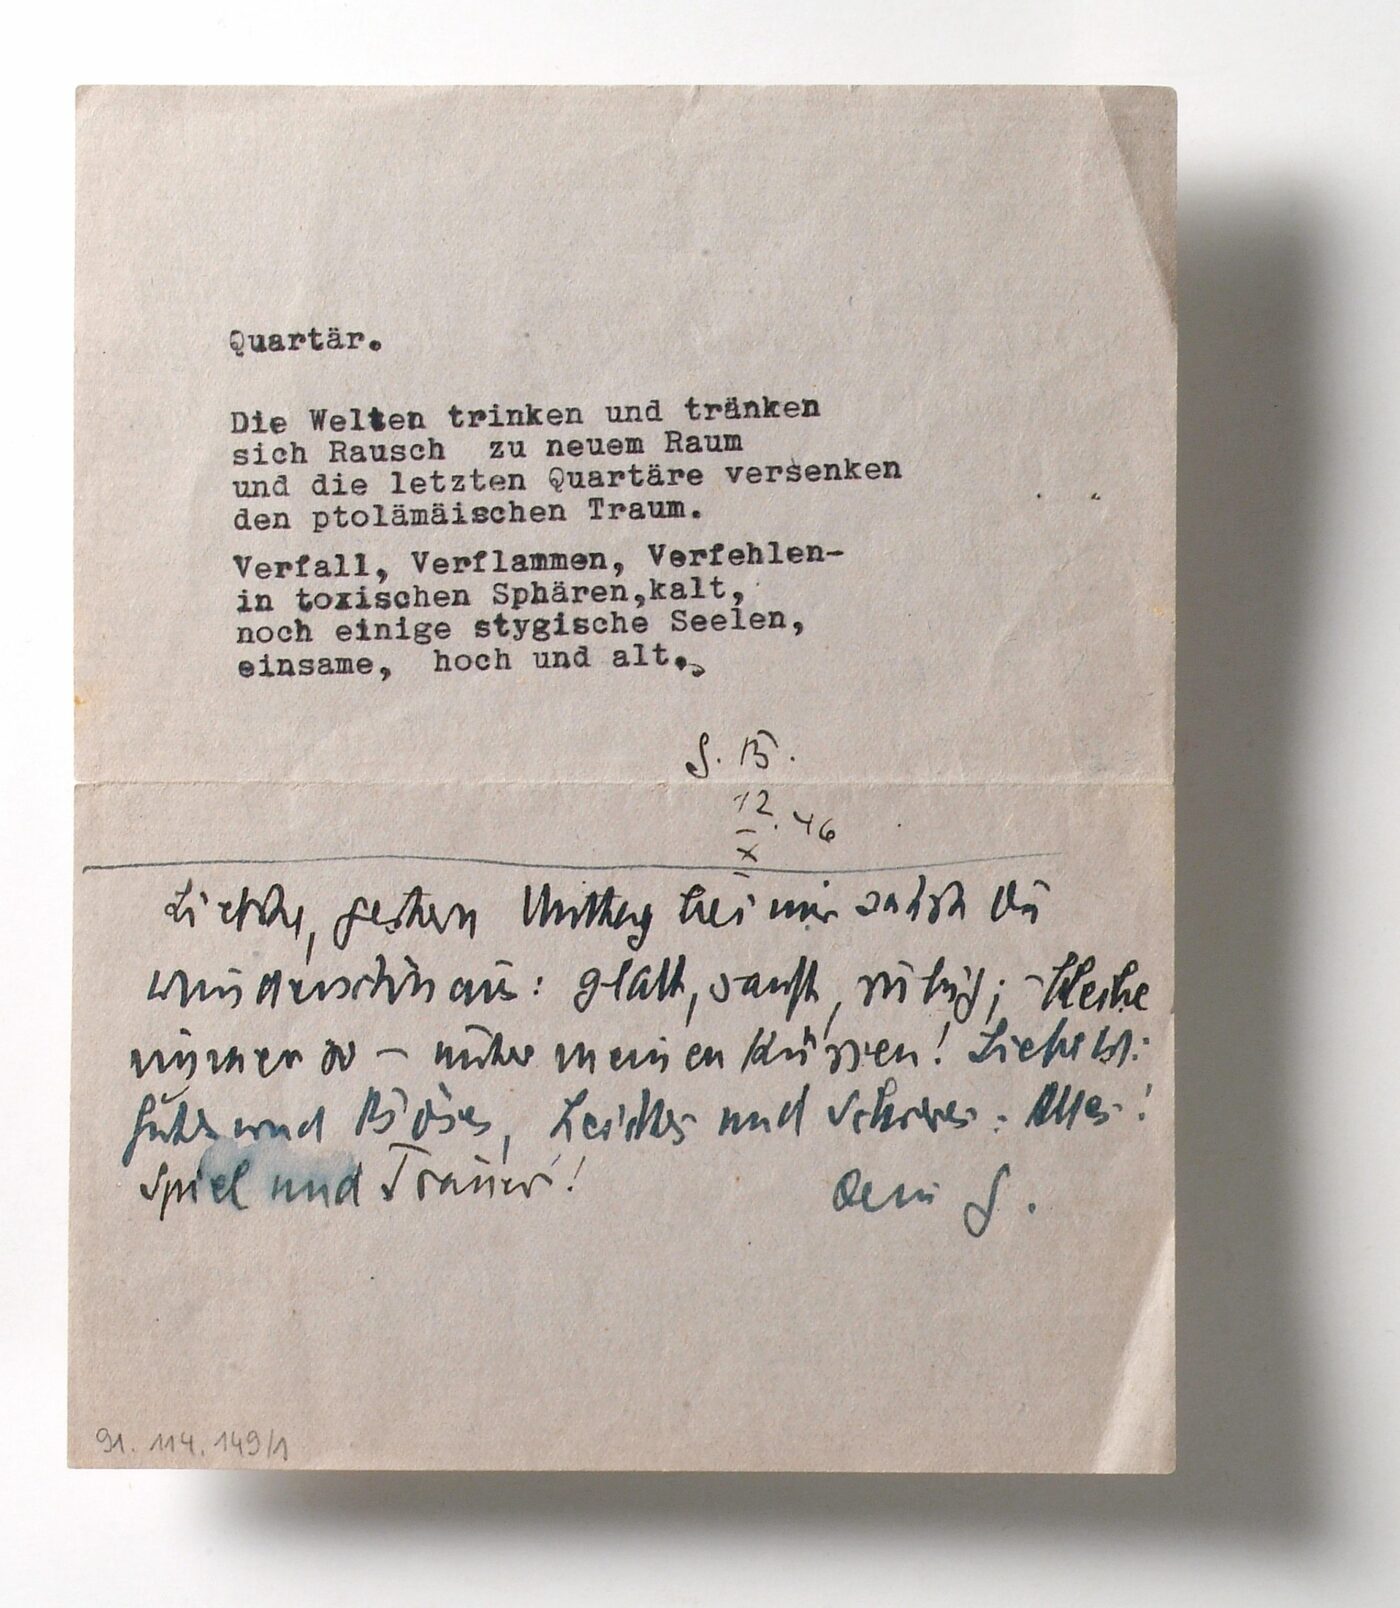 Quartär.
Die Welten trinken und tränken
sich Rausch zu neuem Raum
und die letzten Quartäre versenken
den ptolämäischen Traum.
Verfall, Verflammen, Verfehlen-
in toxischen Sphären,kalt,
noch einige stygische Seelen,
einsame, hoch und alt.
G. B.
12
X . 46
gestern Mittag bei mir sahst Du
wunderschön aus: glatt, sanft, ruhig; - bleibe
immer so - unter meinen Küssen! Liebe ist:
Gutes und Böses, Leichtes und Schweres. Alles!
Spiel und Trauer!
Dein G.
91. 114. 149/1